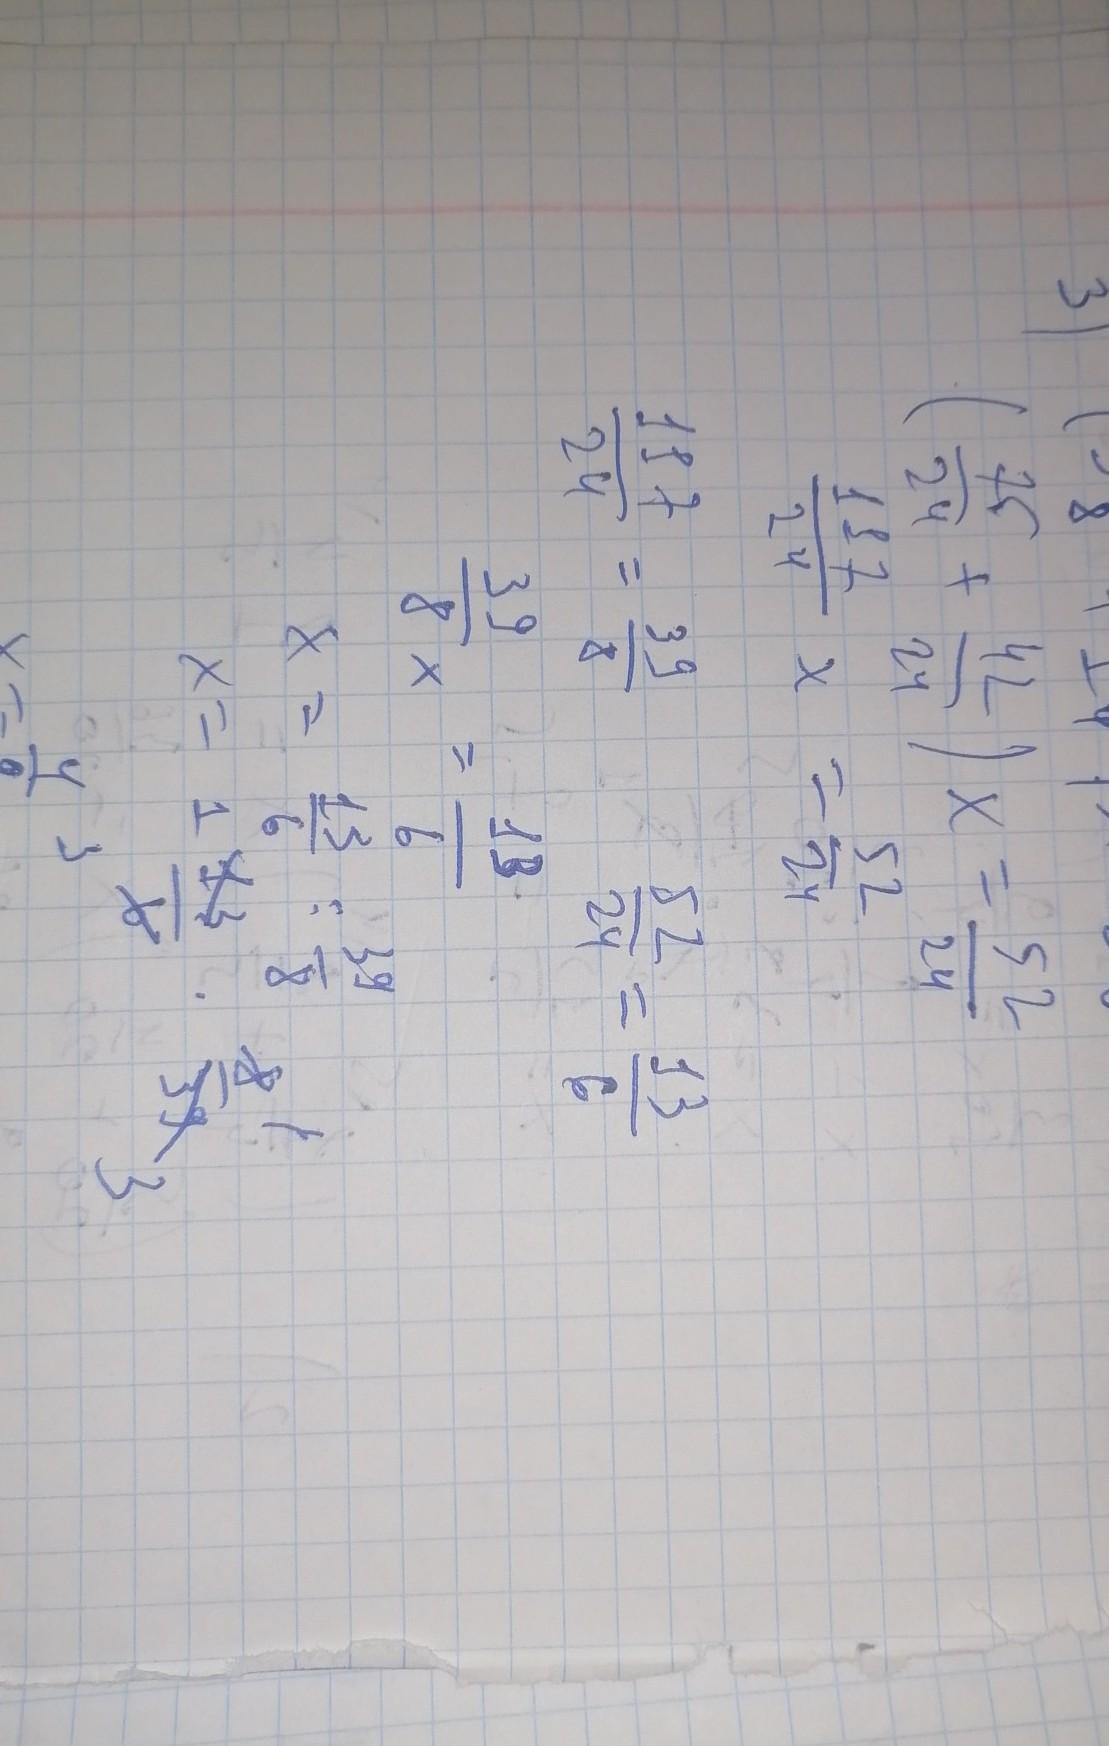 3)
( 75/24 + 42/24 ) x = 52/24
117/24 x = 52/24
117/24 = 39/8 52/24 = 13/6
39/8 x = 13/6
x = 13/6 : 39/8
x = 1 13/6 · 8/39 3
x = 4